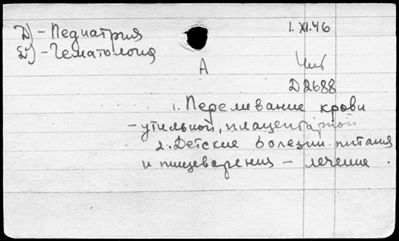 Д) - Педиатрия
Д) - Гематология
1.XI.46
Чит
А
Д2688
1. Переливание крови
- утильной, плацентарной
2. Детские болезни питания
и пищеварения - лечение.